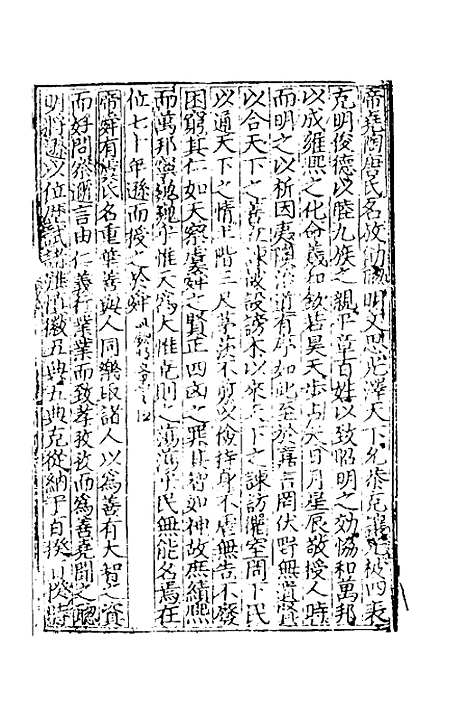 帝堯陶唐氏名放勛欽明文思光澤天下允恭克讓光被四表
克明俊德以睦九族之親平章百姓以致昭明之効協和萬邦
以成雍熙之化命羲和欽若昊天步占大日月星辰敬授人時
而明之以析因夷隩治道有序如此至於嘉言罔伏野無遺賢
以合天下之善立諫鼓設謗木以來天下之諫訪四岳闢下民
以通天下之情土階三尺茅茨不剪以儉持身不虐無告不廢
困窮其仁如天察虞舜之賢正四凶之罪其智如神故庶績熙
而萬邦寧巍巍乎惟天為大惟堯則之蕩蕩乎民無能名焉在
位七十年遜而授之於舜
帝舜有虞氏名重華善與人同樂取諸人以為善有大智之資
而好問察邇言由仁義行業業而致孝孜孜而為善堯聞之聰
明將遜以位歷試諸難慎徽五典五典克從納于百揆百揆時